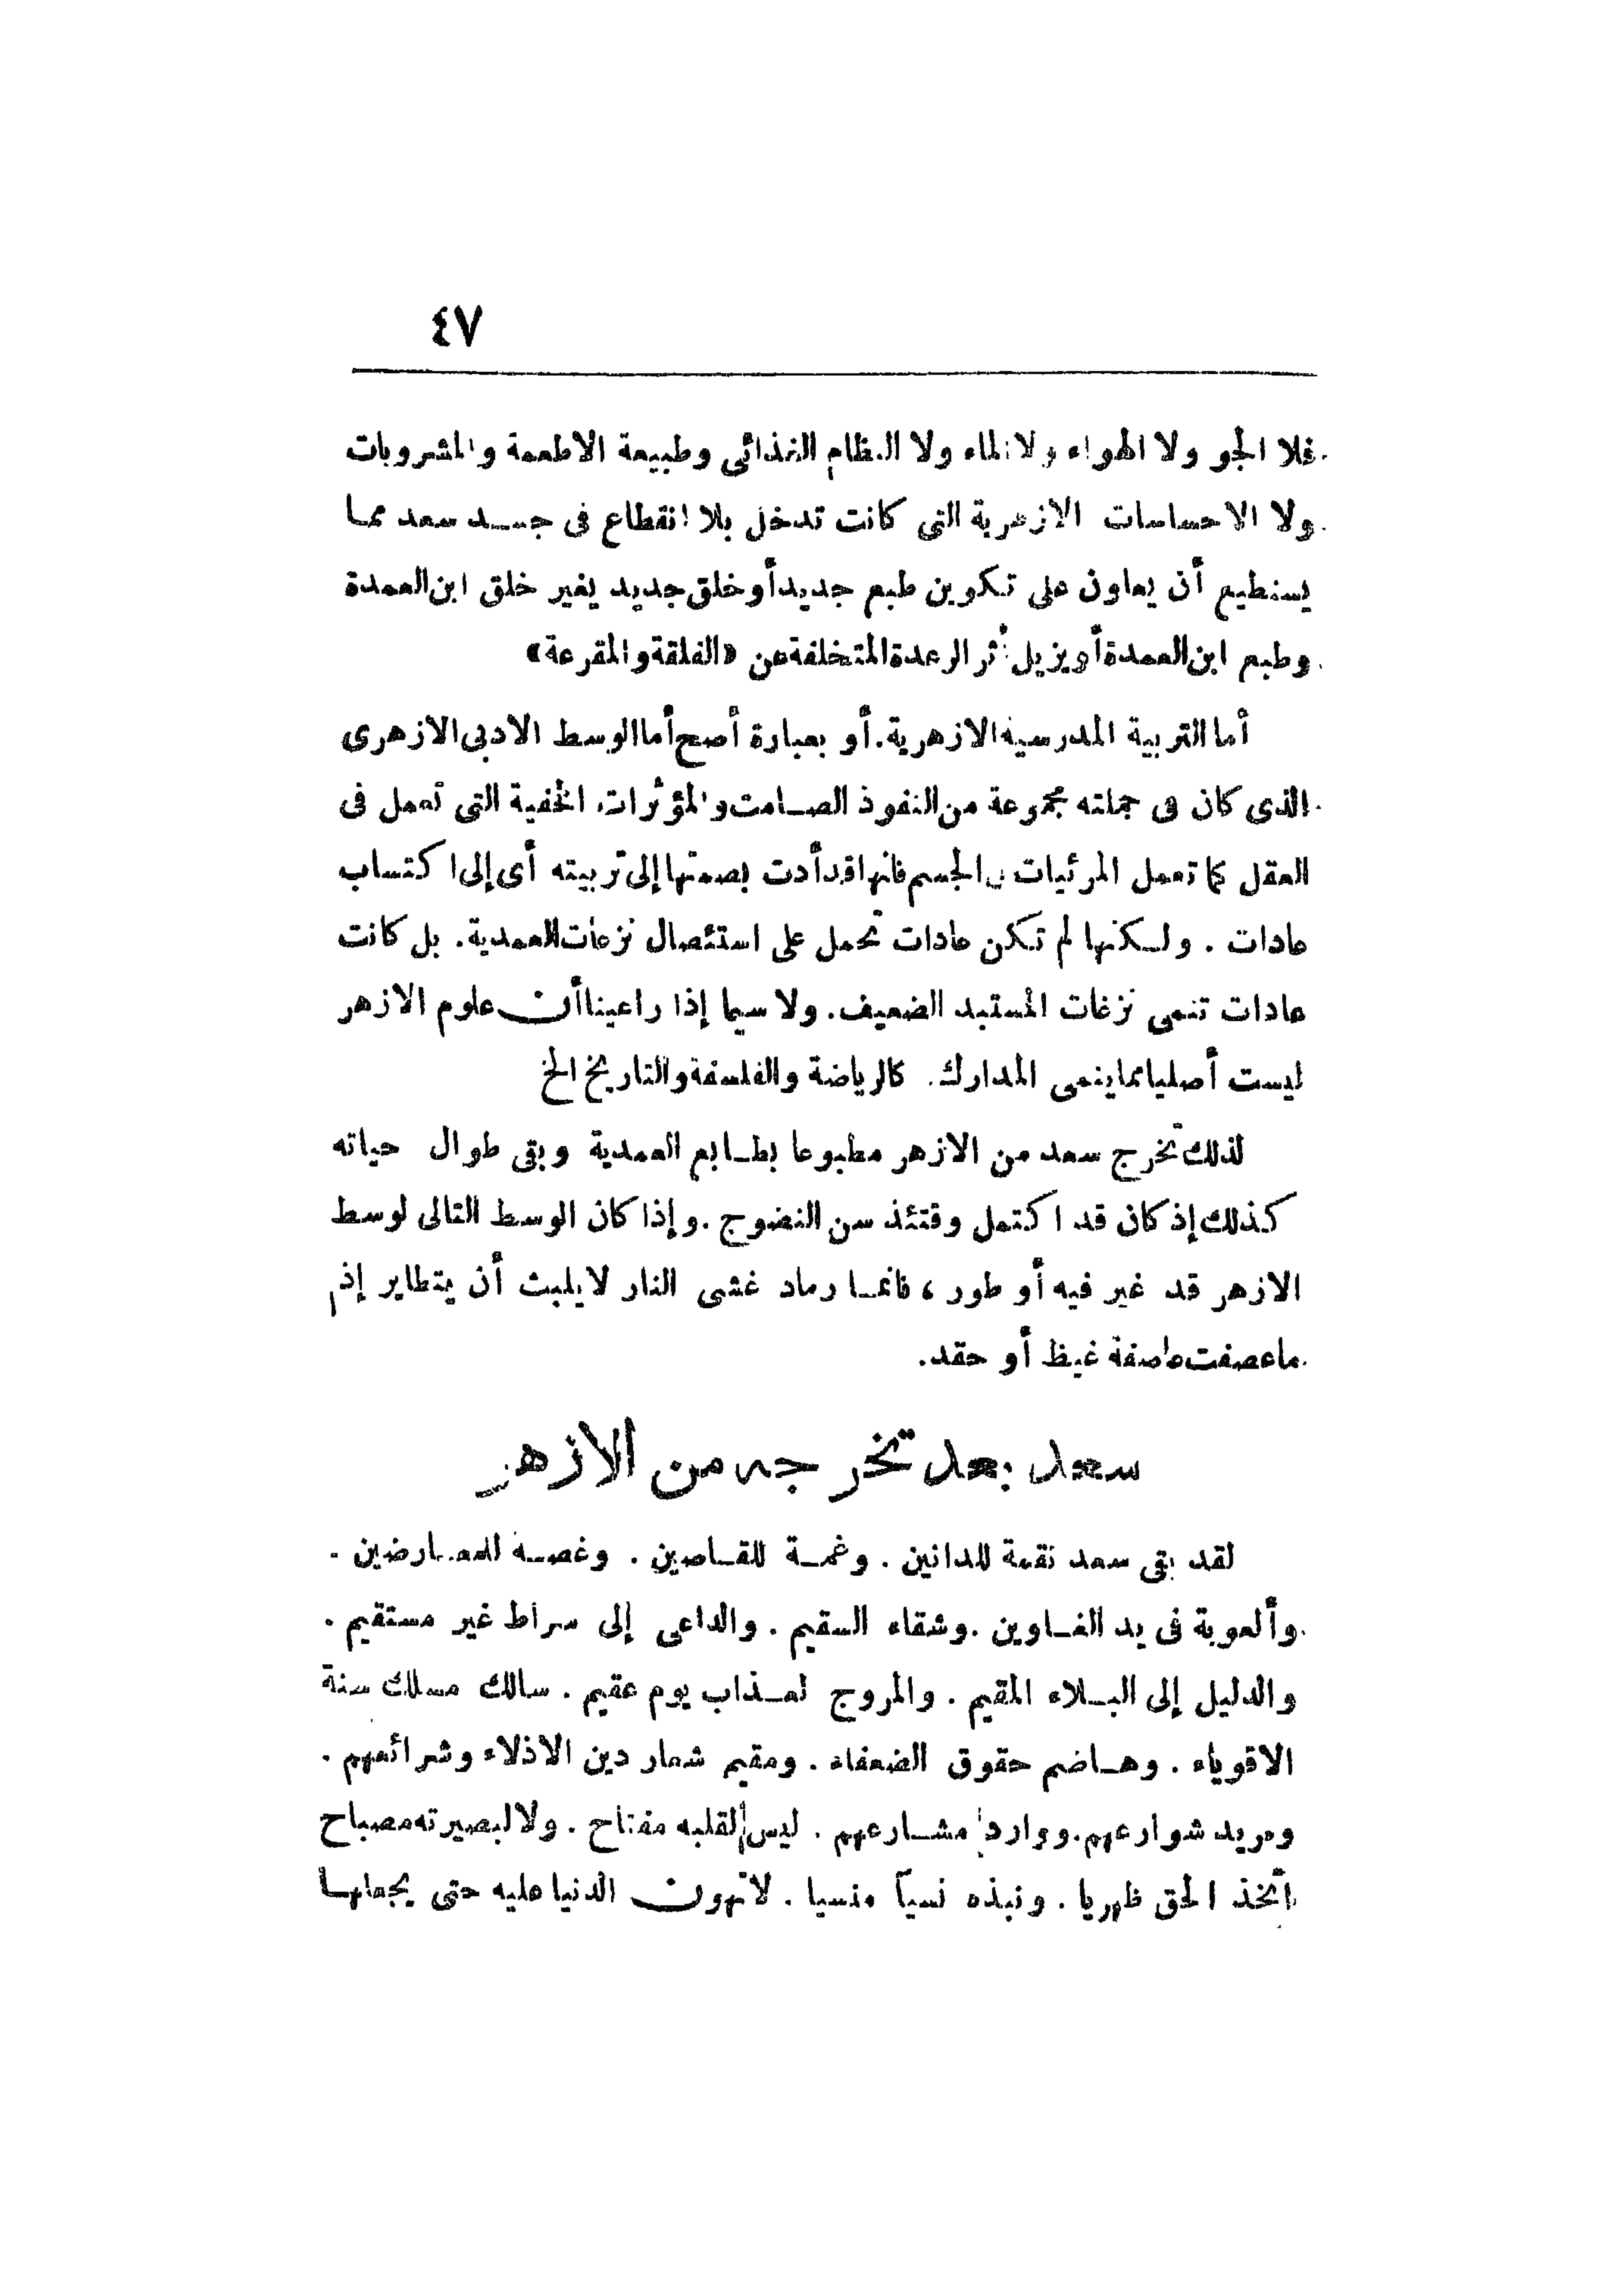 ٤٧
فلا الجو ولا الهواء ولا الماء ولا النظام الغذائى وطبيعة الاطعمة والمشروبات
ولا الاحساسات الازهرية التى كانت تدخل بلا انقطاع فى جسد سعد مما
يستطيع أن يعاون على تكوين طبع جديد أو خلق جديد يغير خلق ابن العمدة
وطبع ابن العمدة أو يزيل أثر الرعدة المتخلفة عن «الفلقة والمقرعة»
أما التربية المدرسية الازهرية. أو بعبارة أصح أما الوسط الادبى الازهرى
الذى كان فى جملته مجموعة من النفوذ الصامت والمؤثرات الخفية التى تعمل فى
العقل كما تعمل المرئيات فى الجسم فانها قد أدت بصمتها إلى تربيته أى إلى اكتساب
عادات . ولكنها لم تكن عادات تحمل على استئصال نزعات العمدية. بل كانت
عادات تنمى نزغات المستبد الضعيف. ولا سيما إذا راعينا أن علوم الازهر
ليست أصليا مما ينمى المدارك. كالرياضة والفلسفة والتاريخ الخ
لذلك تخرج سعد من الازهر مطبوعا بطابع العمدية وبقى طوال حياته
كذلك إذ كان قد اكتمل وقتئذ سن النضوج . وإذا كان الوسط التالى لوسط
الازهر قد غير فيه أو طور ، فانما رماد غشى النار لا يلبث أن يتطاير إذ
ما عصفت عاصفة غيظ أو حقد.
سعد بعد تخرجه من الازهر
لقد بقى سعد نقمة للدانين . وغمة للقاصين . وغصة للمعارضين .
وألعوبة فى يد الغاوين . وشقاء السقيم . والداعى إلى سراط غير مستقيم .
والدليل إلى البلاء المقيم . والمروج لعذاب يوم عقيم . سالك مسلك سنة
الاقوياء . وهاضم حقوق الضعفاء . ومقيم شعار دين الاذلاء وشرائعهم .
ومريد شوارعهم. ووارد مشارعهم . ليس لقلبه مفتاح . ولا لبصيرته مصباح
اتخذ الحق ظهريا . ونبذه نسيآ منسيا . لا تهون الدنيا عليه حتى يجعلها